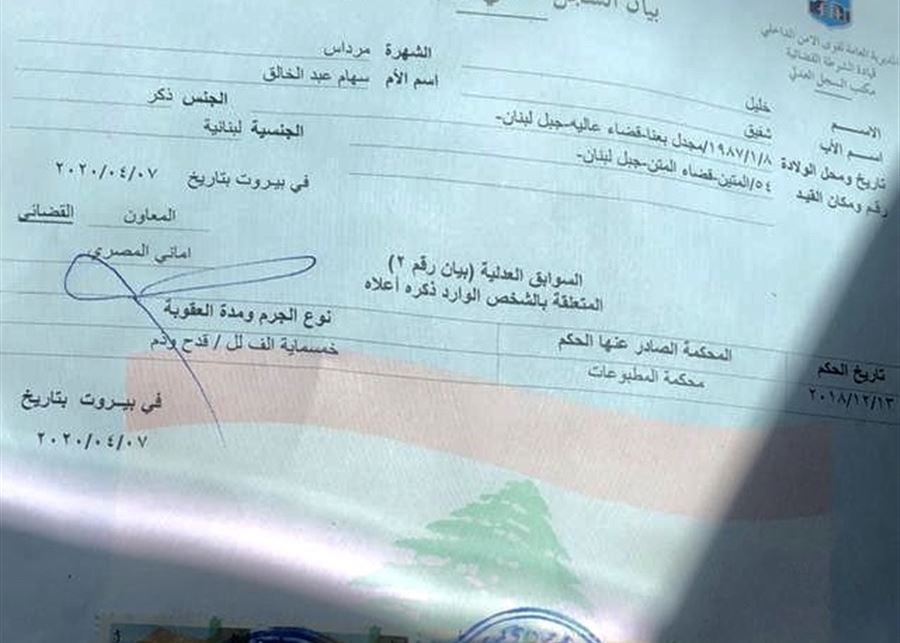 بيان السجل
المديرية العامة لقوى الامن الداخلي
قيادة الشرطة القضائية
مكتب السجل العدلي
الاســم خليل الشهرة مرداس
اسـم الأب شفيق اسم الأم سهام عبد الخالق
تاريخ ومحل الولادة ١٩٨٧/١/٨/مجدل بعنا-قضاء عاليه-جبل لبنان- الجنس ذكر
رقم ومكان القيد ٥٤/المتين-قضاء المتن-جبل لبنان- الجنسية لبنانية
في بيروت بتاريخ ٢٠٢٠/٠٤/٠٧
المعاون القضائي
اماني المصري
السوابق العدلية (بيان رقم ٢)
المتعلقة بالشخص الوارد ذكره أعلاه
تاريخ الحكم المحكمة الصادر عنها الحكم نوع الجرم ومدة العقوبة
٢٠١٨/١٢/١٣ محكمة المطبوعات خمسماية الف لل / قدح وذم
في بيـروت بتاريخ
٢٠٢٠/٠٤/٠٧